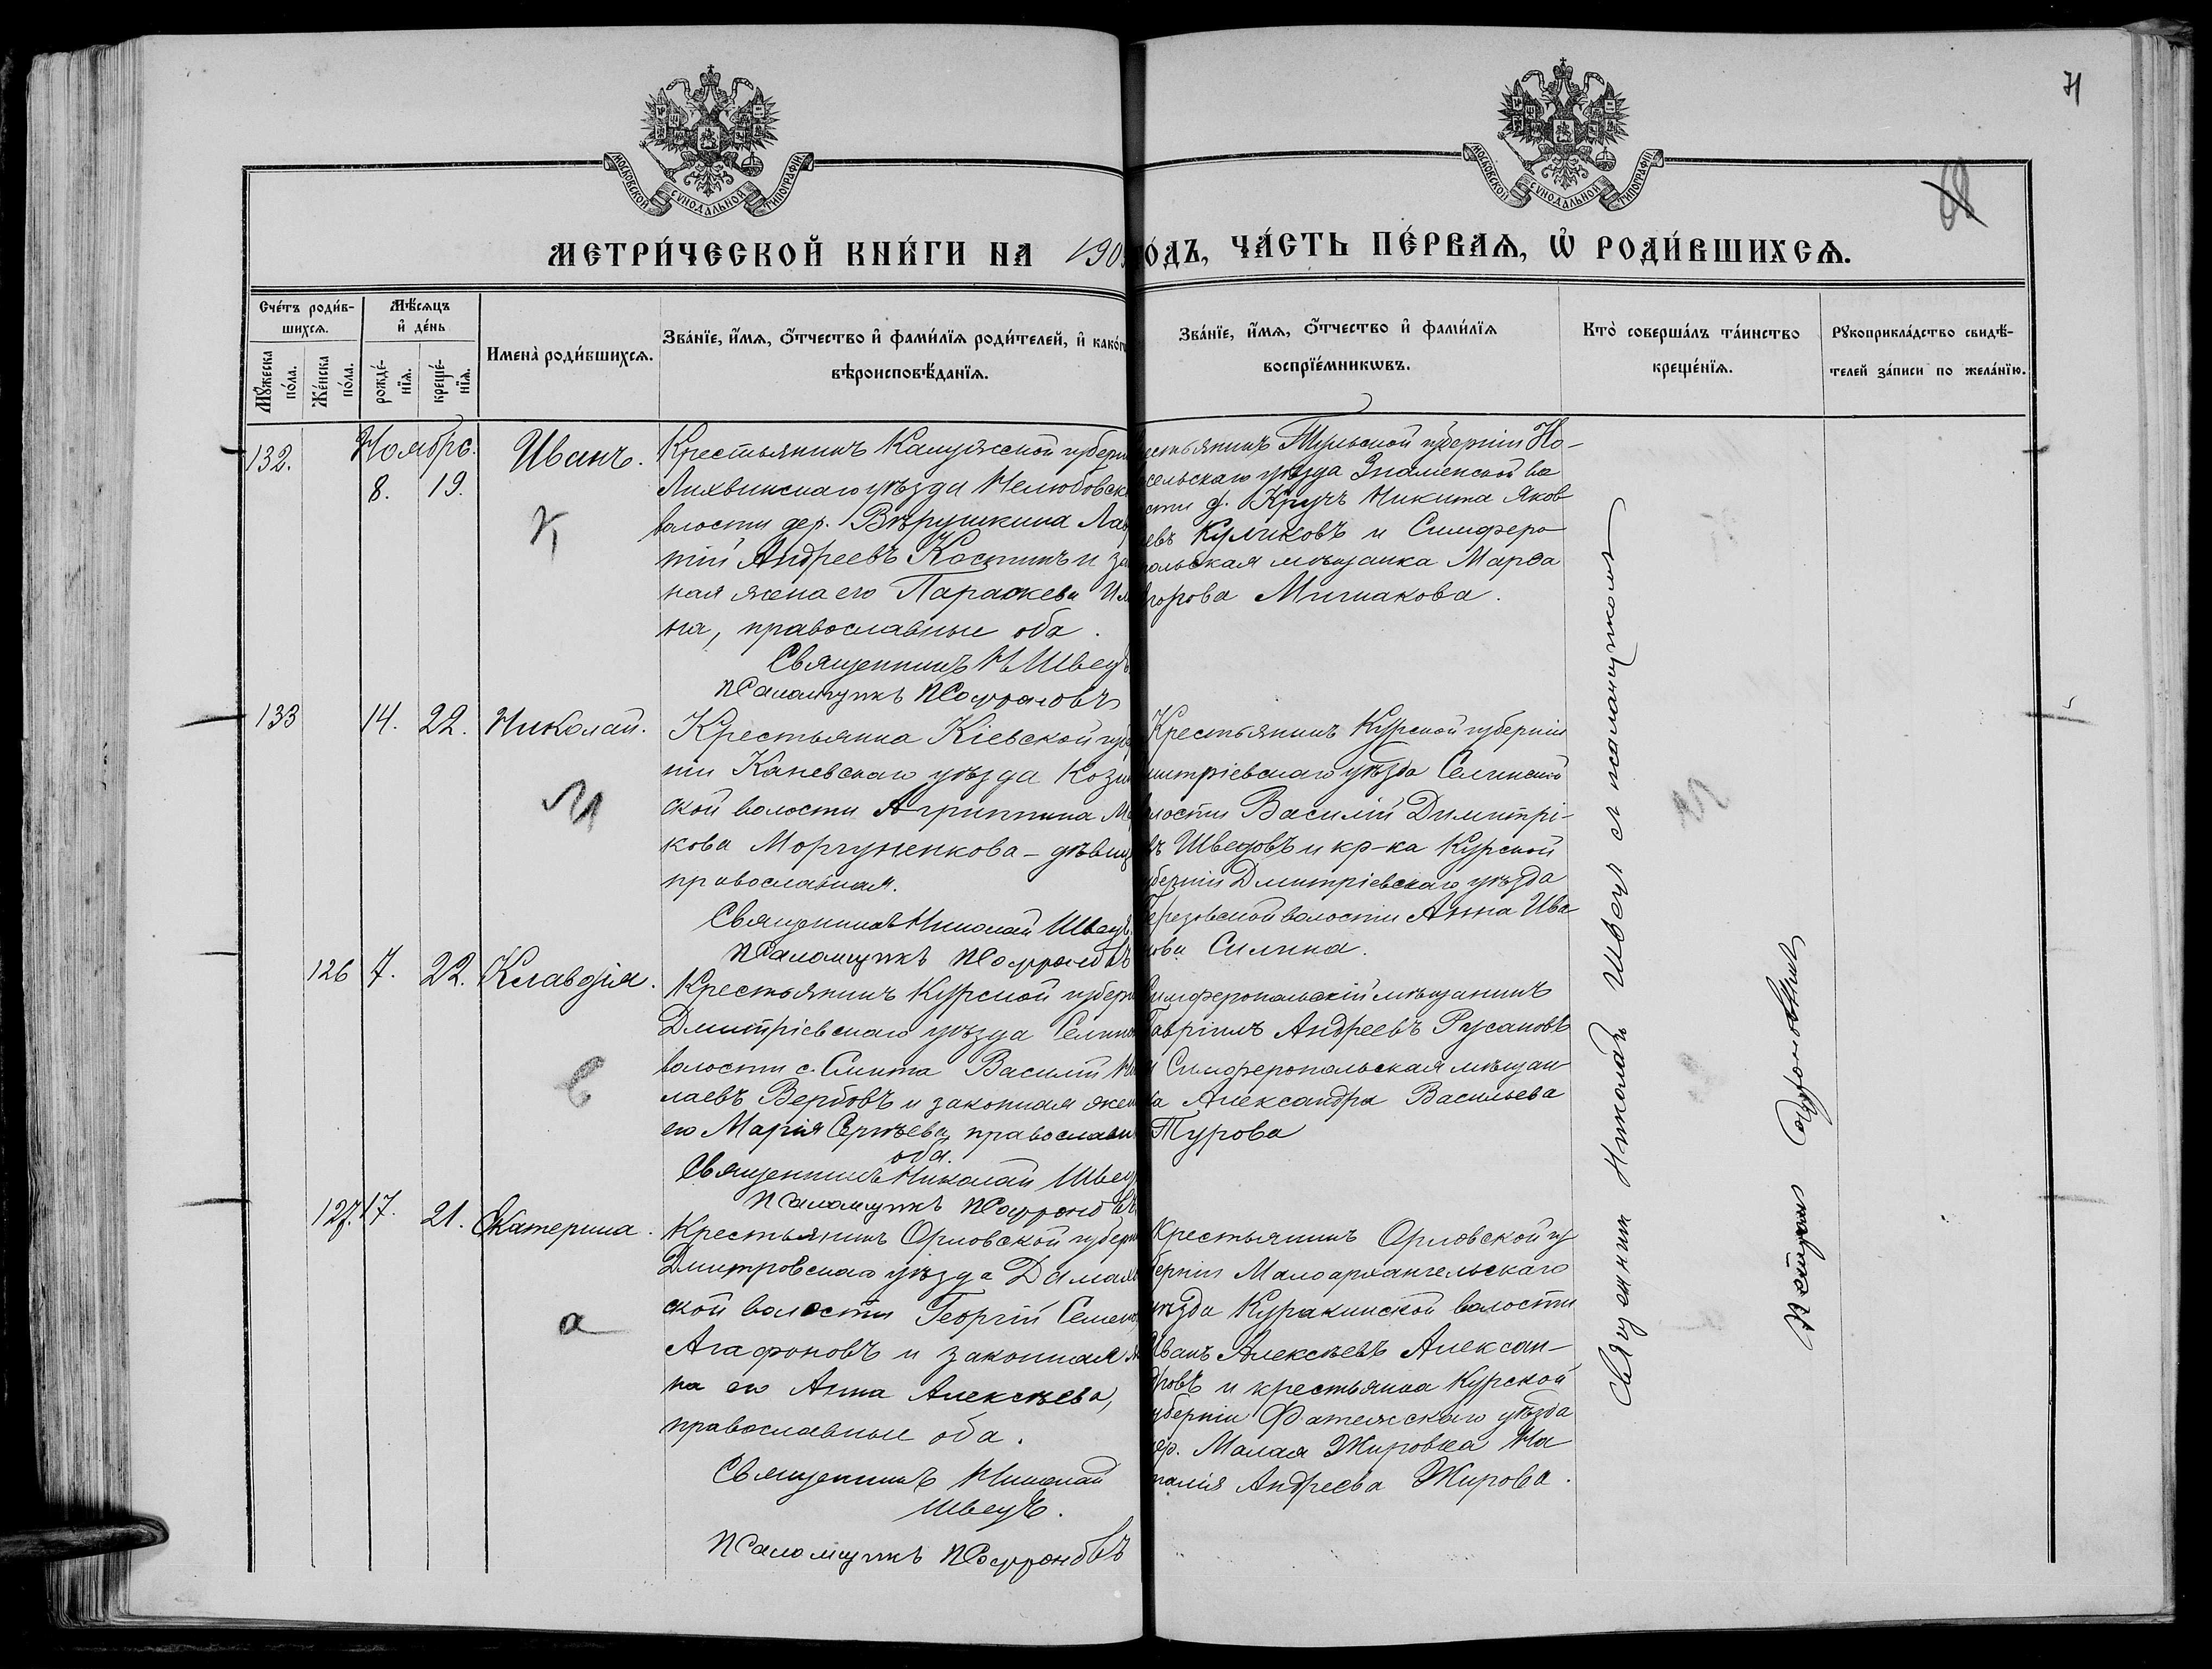 71
68
МОСКОВСКОЙ СѴНОДАЛЬНОЙ ТИПОГРАФІИ
МОСКОВСКОЙ СѴНОДАЛЬНОЙ ТИПОГРАФІИ
МЕТРИ́ЧЕСКОЙ КНИ́ГИ НА 190
ГО́ДЪ, ЧА́СТЬ ПЕ́РВАѦ, Ѡ҆ РОДИ́ВШИХСѦ.
Сче́тъ роди́в-
шихсѧ.
Мꙋ́жеска
по́ла.
Же́нска
по́ла.
Мѣ́сѧцъ
и҆ де́нь
рожде́-
нїѧ.
креще́-
нїѧ.
Имена̀ роди́вшихсѧ.
Зва́нїе, и҆́мѧ, ѻ҆́тчество и҆ фами́лїѧ роди́телей, и҆ како́гѡ
вѣроисповѣ́данїѧ.
Зва́нїе, и҆́мѧ, ѻ҆́тчество и҆ фами́лїѧ
воспрїе́мникѡвъ.
Кто̀ соверша́лъ та́инство
креще́нїѧ.
Рꙋкоприкла́дство свидѣ́-
телей за́писи по жела́нїю.
132.
Ноябрь.
8. 19.
Иванъ.
К
Крестьянинъ Калужской губерн
Лихвинскаго уѣзда Нелюбовск
волости дер. Вѣрушкина Лав
тій Андреевъ Костинъ и за
ная жена его Параскева Ил
на, православные оба.
Священникъ Н Швецъ
Псаломщикъ П Софроновъ
естьянинъ Тульской губерніи Но-
сельскаго уѣзда Знаменской во
сти д. Кручъ Никита Яков
евъ Куликовъ и Симферо
польская мѣщанка Марѳа
горова Мичакова.
133
14. 22.
Николай.
И
Крестьянка Кіевской губ
ніи Каневскаго уѣзда Кози
ской волости Агриппина М
кова Моргуненкова - дѣвиц
православная.
Священникъ Николай Швецъ.
Псаломщикъ П Софроновъ
Крестьянинъ Курской губерніи
митріевскаго уѣзда Селинской
лости Василій Димитрі-
въ Шведовъ и кр-ка Курской
уберніи Дмитріевскаго уѣзда
Березовской волости Анна Ива
нова Силина.
126
7. 22.
Клавдія.
С
Крестьянинъ Курской губерн
Дмитріевскаго уѣзда Селинск
волости с. Смита Василій Ни
лаевъ Вербовъ и законная жен
его Марія Сергѣева, православн
оба.
Священникъ Николай Швец
Псаломщикъ П Софроновъ
Симферопольскій мѣщанинъ
Гавріилъ Андреевъ Русановъ
и Симферопольская мѣщан
ка Александра Васильева
Турова
127.
17. 21.
Екатерина.
а
Крестьянинъ Орловской губерн
Дмитровскаго уѣзда Домах
ской волости Георгій Семено
Агафоновъ и законная же
на его Анна Алексѣева,
православные оба.
Священникъ Николай
Швецъ.
Псаломщикъ П Софроновъ
Крестьянинъ Орловской гу
берніи Малоархангельскаго
уѣзда Куракинской волости
Иванъ Алексѣевъ Алексан-
дровъ и крестьянка Курской
уберніи Фатежскаго уѣзда
дер. Малая Жировка На
талія Андреева Жирова.
Священникъ Николай Швецъ съ псаломщикомъ
Петромъ Софроновымъ